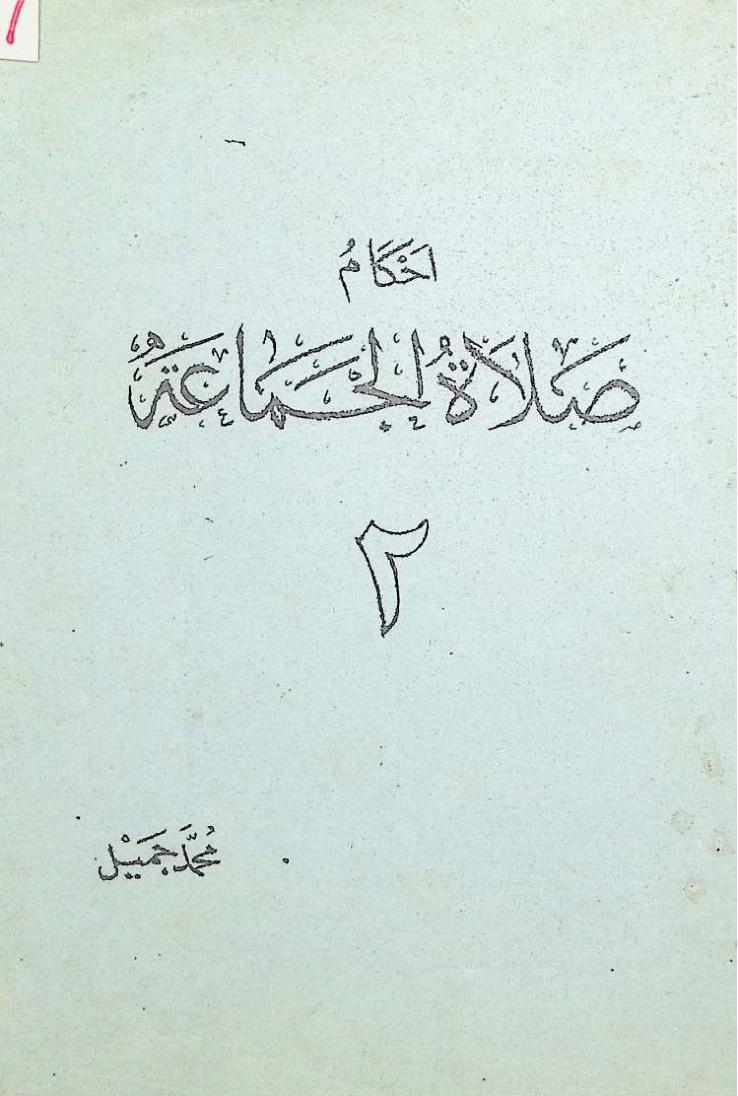 اَحْكَامُ
صَلَاةُ الْجَمَاعَةُ
٢
مُحَمَّد جَمِيْل